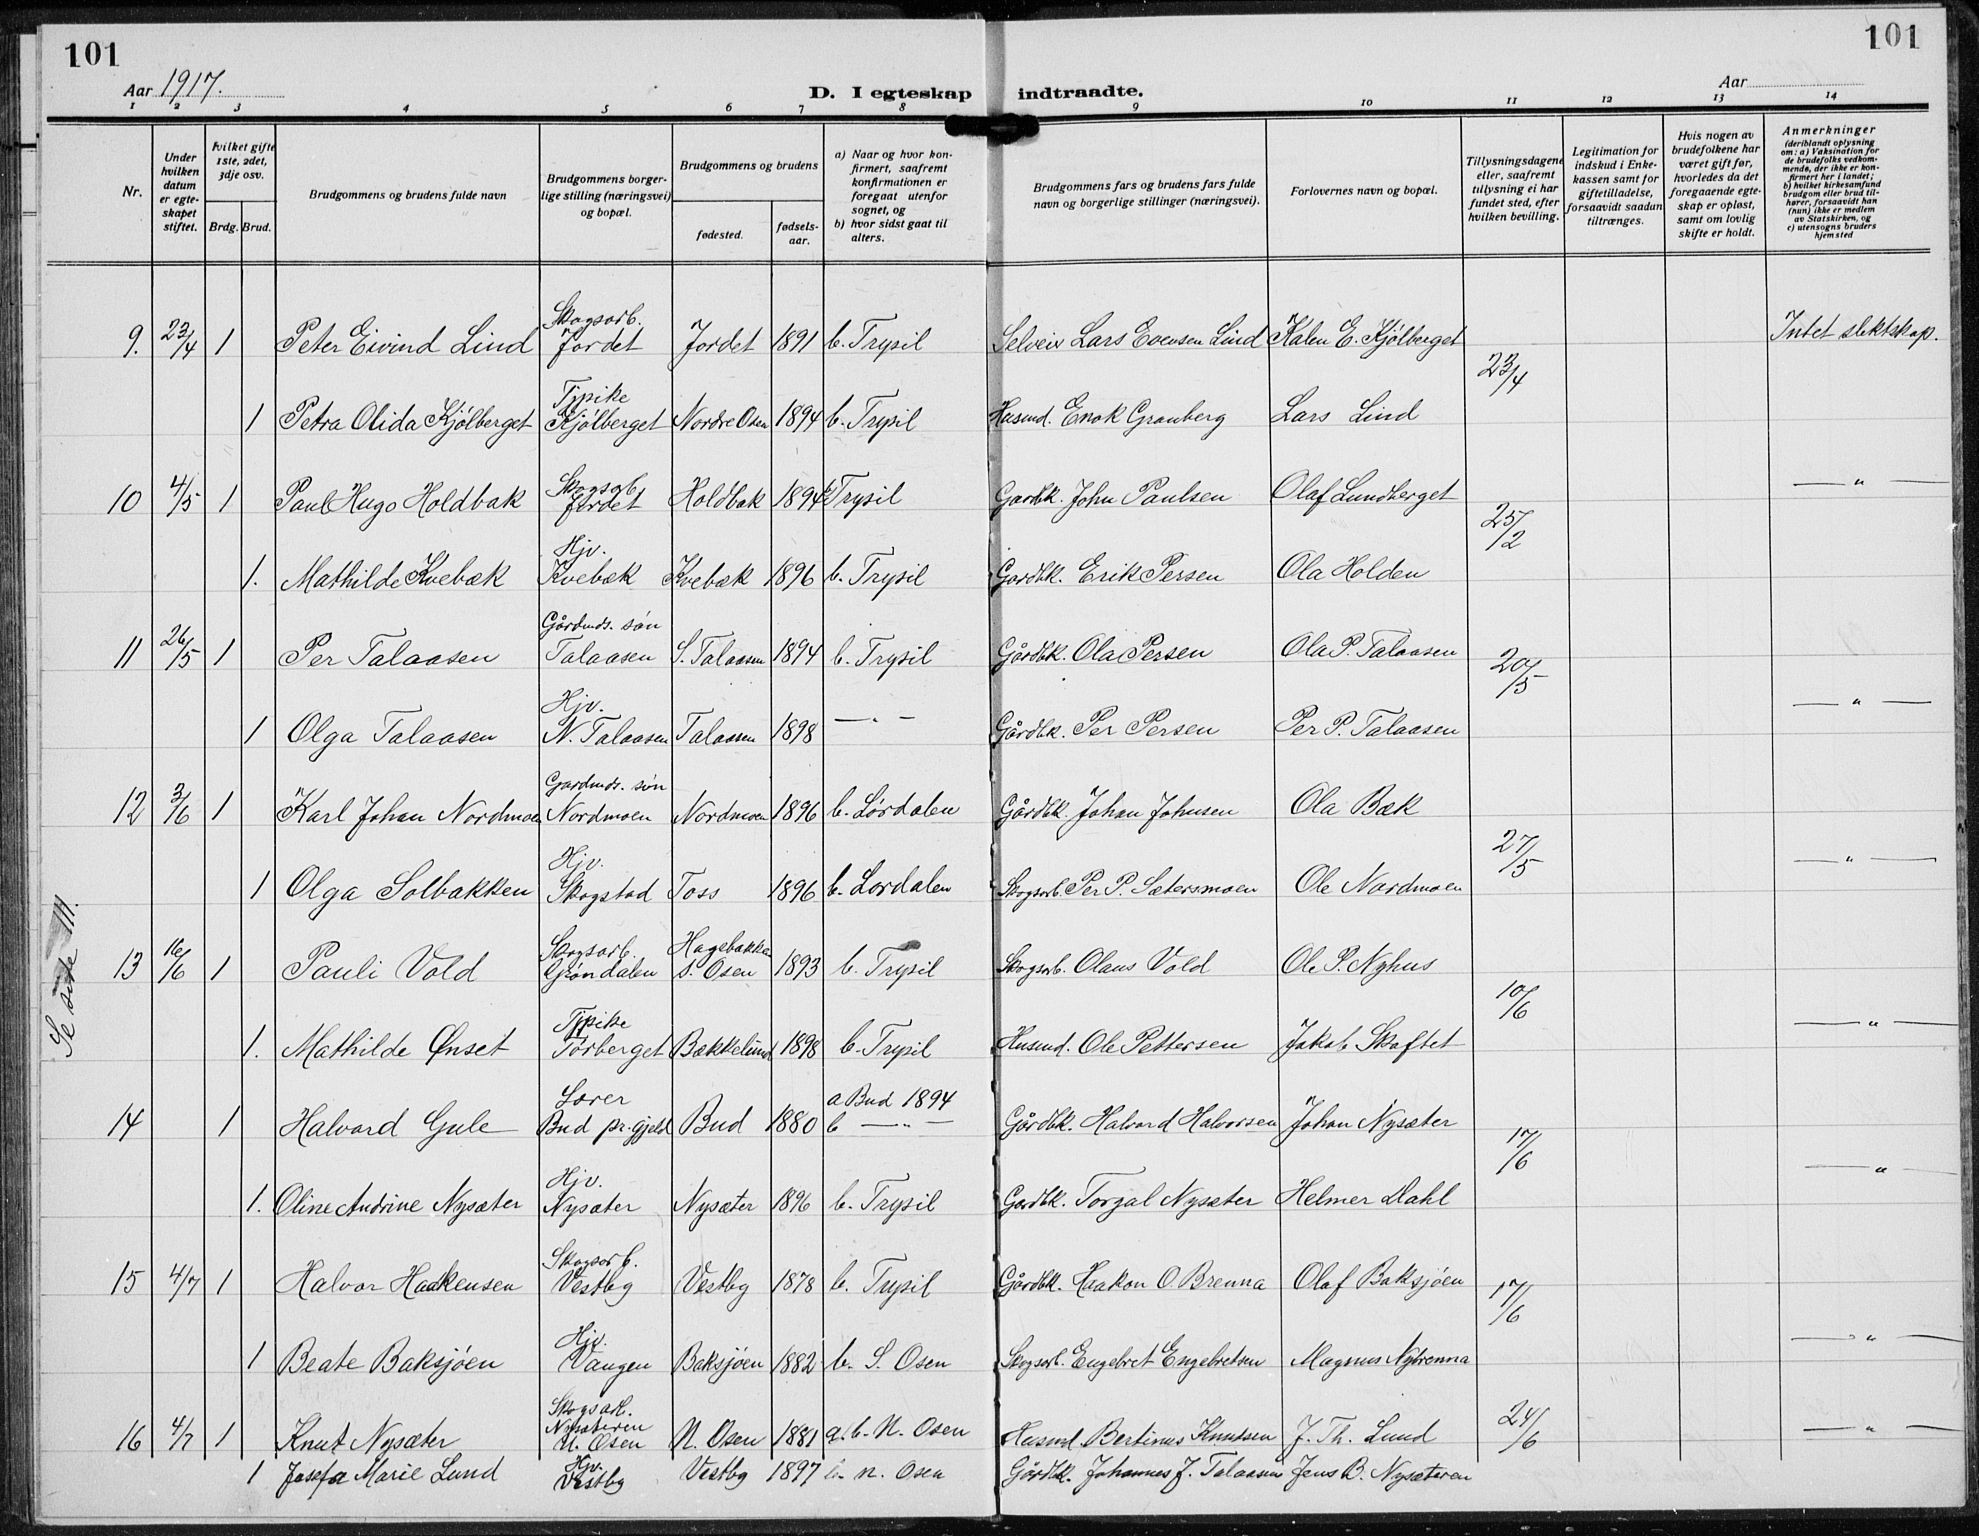 101
101
Aar 1917.
D. I egteskap indtraadte.
Aar
1 2 3 4 5 6 7 8 9 10 11 12 13 14
Nr.
Under hvilken datum er egteskapet stiftet.
Hvilket gifte 1ste, 2det, 3dje osv.
Brdg. Brud.
Brudgommens og brudens fulde navn
Brudgommens borgerlige stilling (næringsvei) og bopæl.
Brudgommens og brudens
fødested.
fødselsaar.
a) Naar og hvor konfirmert, saafremt konfirmationen er foregaat utenfor sognet, og
b) hvor sidst gaat til alters.
Brudgommens fars og brudens fars fulde navn og borgerlige stillinger (næringsvei).
Forlovernes navn og bopæl.
Tillysningsdagene eller, saafremt tillysning ei har fundet sted, efter hvilken bevilling.
Legitimation for indskud i Enkekassen samt for giftetilladelse, forsaavidt saadan tiltrænges.
Hvis nogen av brudefolkene har været gift før, hvorledes da det foregaaende egteskap er opløst, samt om lovlig skifte er holdt.
Anmerkninger (deriblandt oplysning om: a) Vaksination for de brudefolks vedkommende, der ikke er konfirmert her i landet; b) hvilket kirkesamfund brudgom eller brud tilhører, forsaavidt han (hun) ikke er medlem av Statskirken, og c) utensogns bruders hjemsted
9. 23/4 1 Peter Eivind Lind Skogsarb. Jordet Jordet 1891 b. Trysil Selveier Lars Evensen Lind Kalen E. Kjølberget 23/4 Intet slektskap.
1 Petra Olida Kjølberget Tjpike Kjølberget Nordre Osen 1894 b. Trysil Husmd. Enok Granberg Lars Lind
10 4/5 1 Paul Hugo Holdbak Skogsarb. Jordet Holdbak 1894 b. Trysil Gardbk. John Paulsen Olaf Lundberget 25/2 — " —
1. Mathilde Kvebæk Hjv. Kvebæk Kvebæk 1896 b. Trysil Gardbk. Erik Persen Ola Holden
11 26/5 1 Per Talaasen Gårdmds. søn Talaasen S. Talaasen 1894 b. Trysil Gårdbk. Ola Persen Ola P. Talaasen 20/5 — " —
1 Olga Talaasen Hjv. N. Talaasen Talaasen 1898 — " — Gårdbk. Per Persen Per P. Talaasen
12 3/6 1 Karl Johan Nordmoen Gardmds. søn Nordmoen Nordmoen 1896 b. Lørdalen Gårdbk. Johan Johnsen Ola Bæk 27/5 — " —
1 Olga Solbakken Hjv. Skogstad Toss 1896 b. Lørdalen Skogsarb. Per P. Sætersmoen Ole Nordmoen
Se side 111.
13 16/6 1 Pauli Vold Skogsarb. Grøndalen Hagebakken s. Osen 1893 b. Trysil Skogsarb. Olaus Vold Ole P. Nyhus 10/6 — " —
1. Mathilde Ønset Tjpike Tørberget Bækkelund 1898 b. Trysil Husmd. Ole Pettersen Jakob Skaftet
14 1 Halvard Gule Lærer Bud pr.gjeld Bud 1880 a Bud 1894 b — " — Gårdbk. Halvard Halvorsen Johan Nysæter 17/6 — " —
1. Oline Andrine Nysæter Hjv. Nysæter Nysæter 1896 b. Trysil Gardbk. Torgal Nysæter Helmer Dahl
15 4/7 1 Halvor Haakensen Skogsarb. Vestby Vestby 1878 b. Trysil Gårdbk. Haakon O. Brenna Olaf Baksjøen 17/6 — " —
1 Beate Baksjøen Hjv. Vangen Baksjøen 1882 b. S. Osen Skogsarb. Engebret Engebretsen Magnus Nybrenna
16 4/7 1 Knut Nysæter Skogsarb. Nysæteren N. Osen N. Osen 1881 a.b. N. Osen Husmd. Bertinus Knutsen J. Th. Lund 24/6 — " —
1 Josefa Marie Lund Hjv. Vestby Vestby 1897 b. n. Osen Gårdbk. Johannes J. Talaasen Jens B. Nysæteren